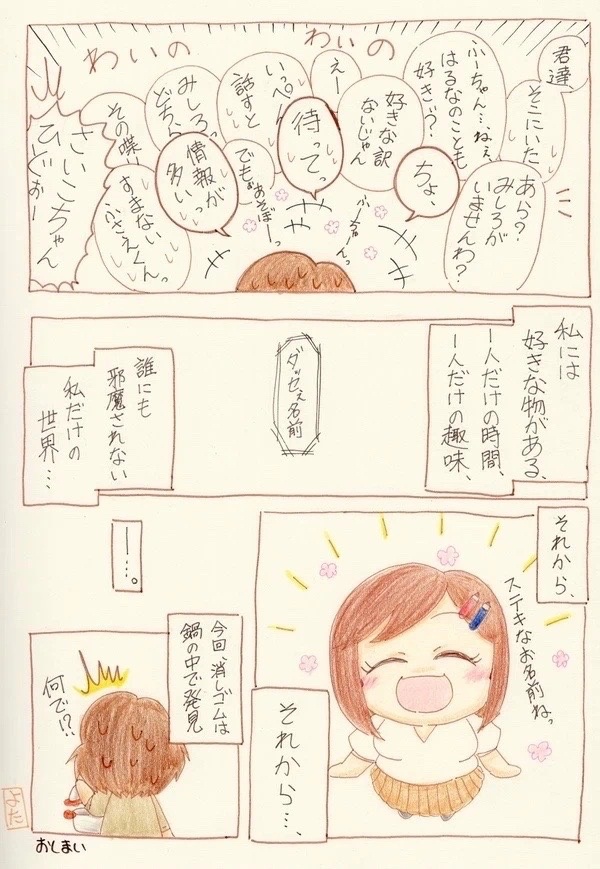 君達、
そこにいた
あら?
みしろが
いませんわ?
ふーちゃん…ねぇ、
はるなのことも
好きぃ?
ちょ、
好きな訳
ないじゃん
えー
ふーちゃーんっ
待ってっ
いっぺんに
話すと
でもぉ
あそぼーっ
わいの
わいの
みしろっ
情報が
多いっ
その喋り
すまない
ふさえくんっ
さいこちゃん
ひーどぉー
私には
好きな物がある、
一人だけの時間、
一人だけの趣味、
ダッセぇ名前
誰にも
邪魔されない
私だけの
世界…
それから、
ステキなお名前ねっ
それから…、
ー…。
今回、消しゴムは
鍋の中で発見
何で!?
よた
おしまい